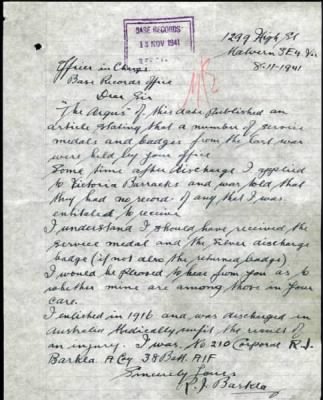 BASE RECORDS
13 NOV 1941
1299 High St
Malvern S.E.4. Vic
8-11-1941
Officer in Charge
Base Records Office
Dear Sir
"The Argus" of this date published an
article stating that a number of service
medals and badges from the last war
were held by your office
Some time after discharge I applied
to Victoria Barracks and was told that
they had no record if any that I was
entitled to receive
I understand I should have received the
service medal and the silver discharge
badge (if not also the returned badge)
I would be pleased to hear from you as to
whether mine are among those in your
care.
I enlisted in 1916 and was discharged in
Australia Medically unfit the result of
an injury. I was No 210 Corporal R. J.
Barkla. A Coy 38 Batt. AIF
Sincerely Yours
R. J. Barkla